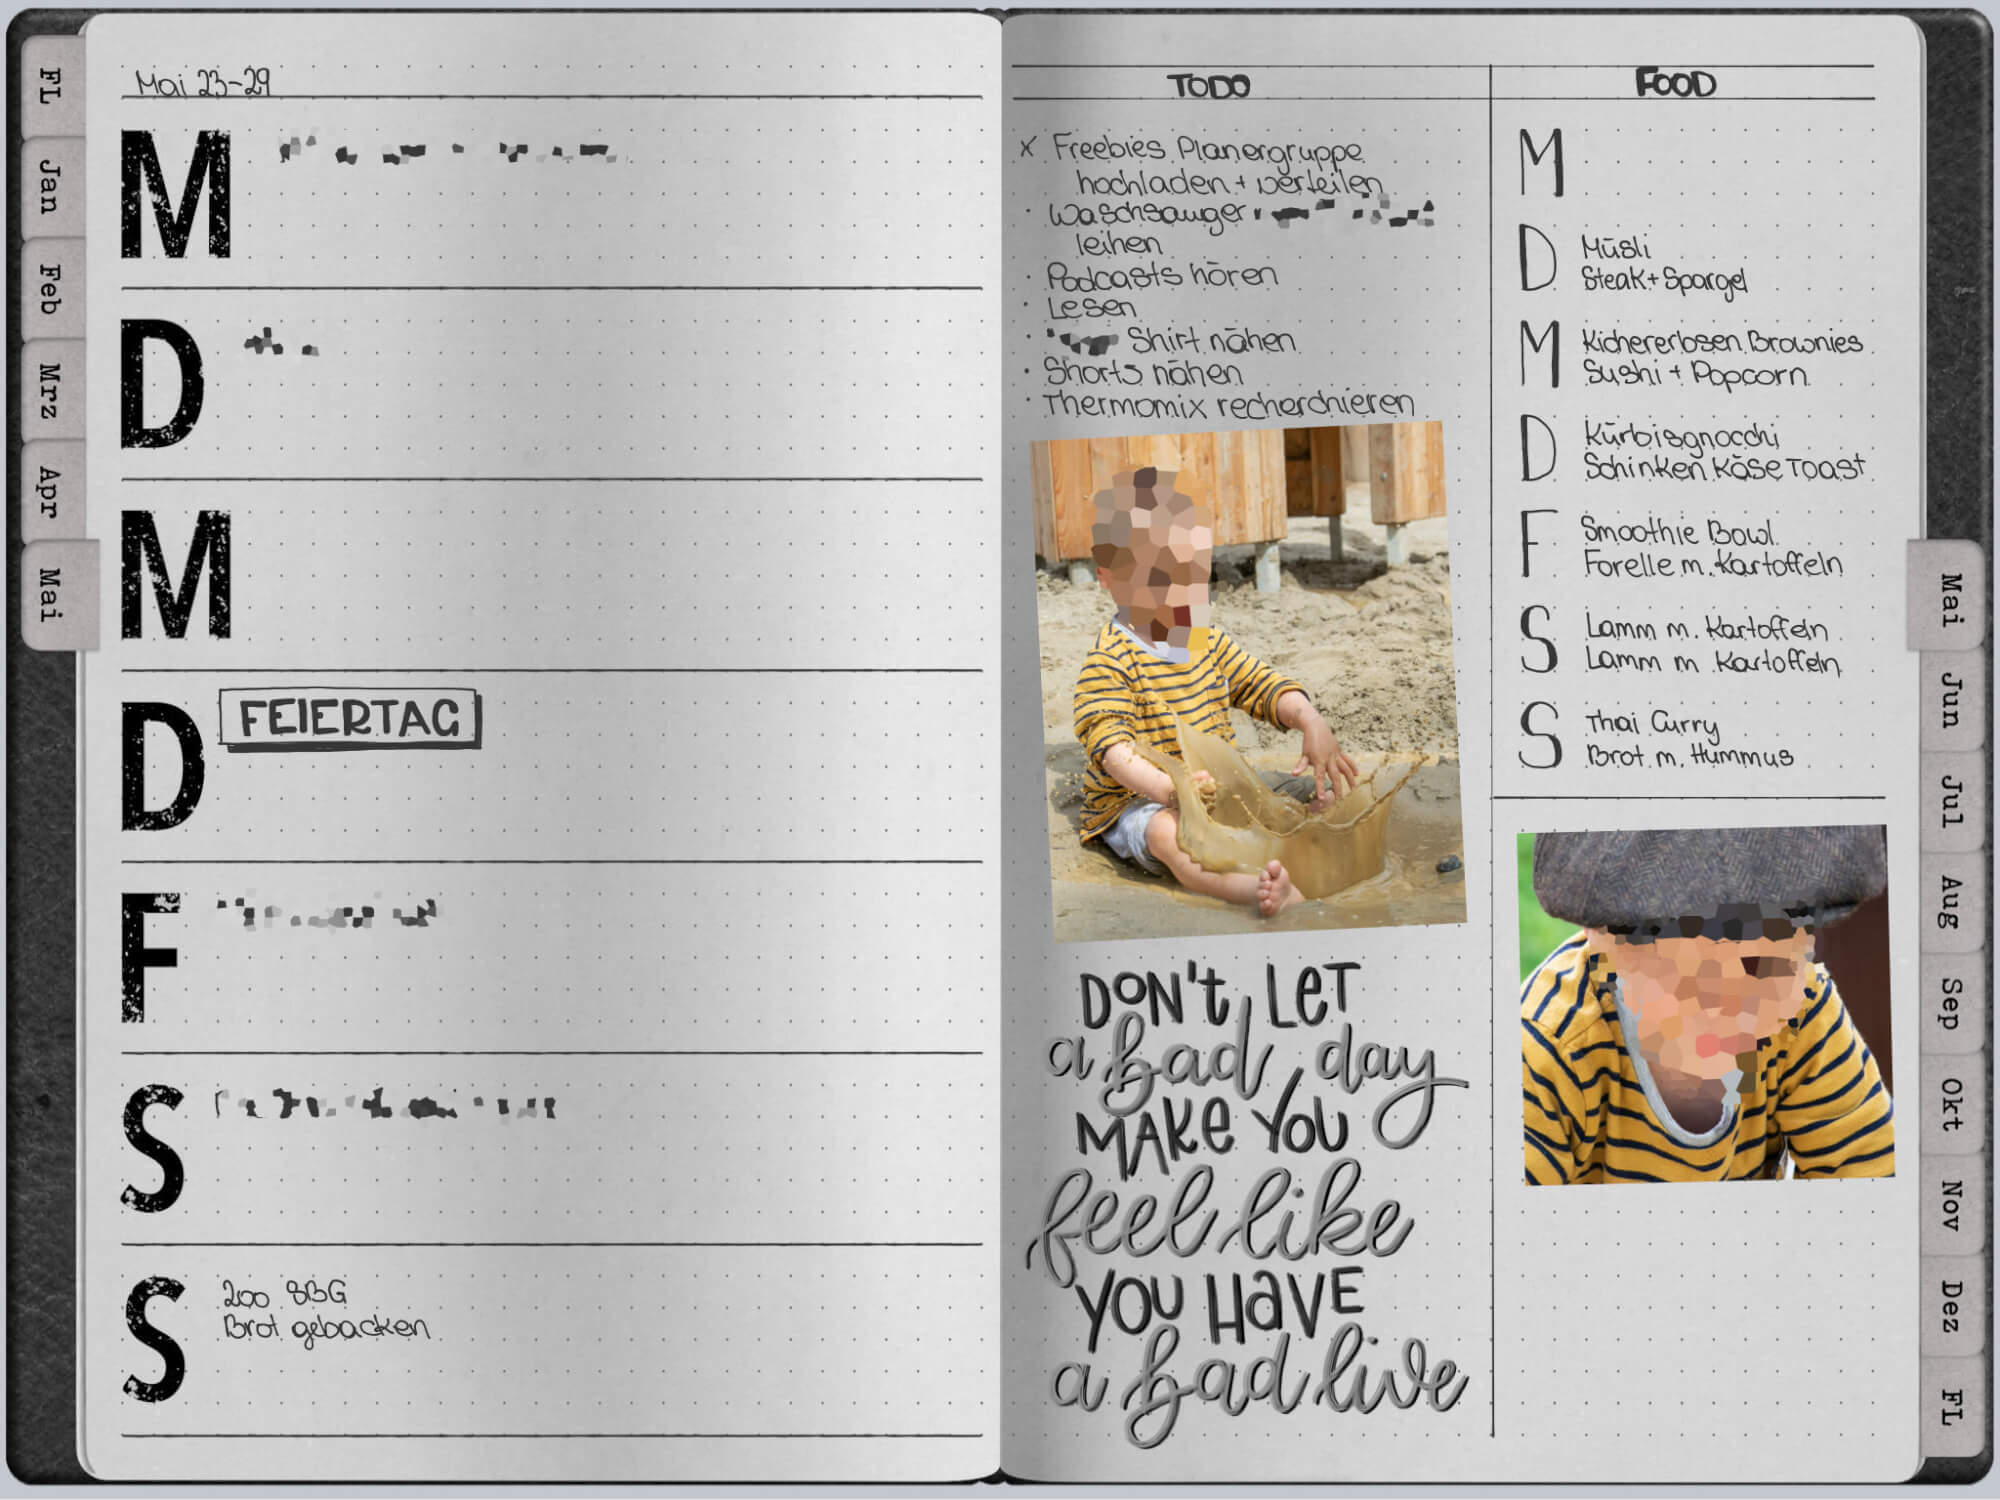 FL
Jan
Feb
Mrz
Apr
Mai
Mai 23-29
M
D
M
D
FEIERTAG
F
S
S
200 SBG
Brot gebacken
TODO
x Freebies Planergruppe
hochladen + verteilen
· Waschsauger
leihen
· Podcasts hören
· Lesen
· Shirt nähen
· Shorts nähen
· Thermomix recherchieren
DON't LET
a bad day
MAKE YOU
feel like
YOU HAVE
a bad live
FOOD
M
D
Müsli
Steak + Spargel
M
Kichererbsen Brownies
Sushi + Popcorn
D
Kürbisgnocchi
Schinken Käse Toast
F
Smoothie Bowl
Forelle m. Kartoffeln
S
Lamm m. Kartoffeln
Lamm m. Kartoffeln
S
Thai Curry
Brot m. Hummus
Mai
Jun
Jul
Aug
Sep
Okt
Nov
Dez
FL